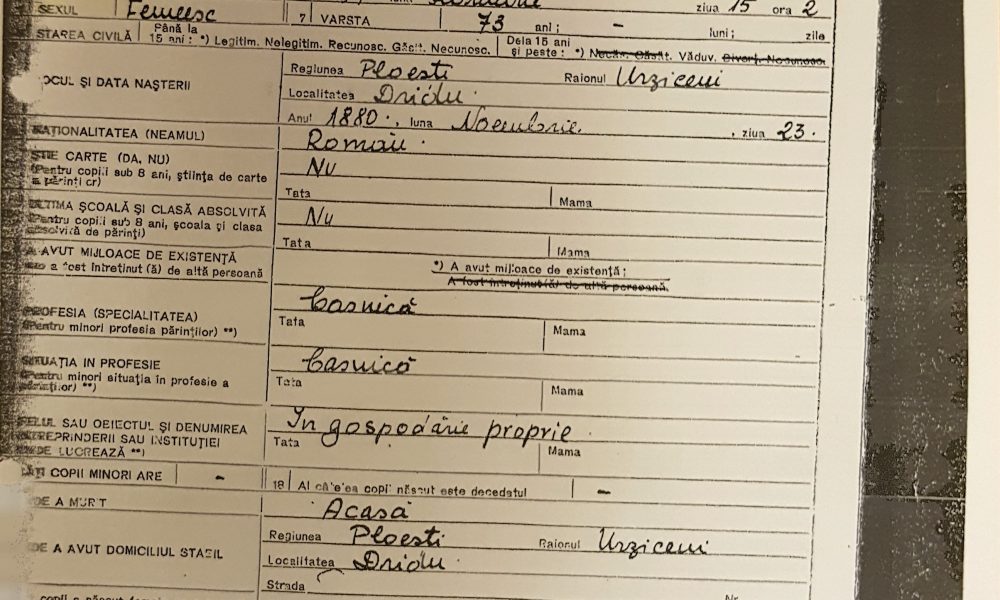 SEXUL Femeesc 7 VARSTA 73 ani; - luni; zile
ziua 15 ora 2
STAREA CIVILĂ Până la 15 ani: *) Legitim. Nelegitim. Recunosc. Găcit. Necunosc. Dela 15 ani și peste: *) Necăs. Căsăt. Văduv. Divorț. Necunosc.
LOCUL ȘI DATA NAȘTERII Regiunea Ploesti Raionul Urziceni
Localitatea Dridu
Anul 1880., luna Noembrie, ziua 23.
NAȚIONALITATEA (NEAMUL) Român.
ȘTIE CARTE (DA, NU) Nu
(Pentru copii sub 8 ani, știința de carte a părinților) Tata Mama
ULTIMA ȘCOALĂ ȘI CLASĂ ABSOLVITĂ Nu
(Pentru copiii sub 8 ani, școala și clasa absolvită de părinți) Tata Mama
A AVUT MIJLOACE DE EXISTENȚĂ *) A avut mijloace de existență;
sau a fost întreținut (ă) de altă persoană A fost întreținut(ă) de altă persoană.
PROFESIA (SPECIALITATEA) Casnică
(Pentru minori profesia părinților) **) Tata Mama
SITUAȚIA IN PROFESIE Casnică
(Pentru minori situația in profesie a părinților) **) Tata Mama
FELUL SAU OBIECTUL ȘI DENUMIREA INTREPRINDERII SAU INSTITUȚIEI In gospodărie proprie
UNDE LUCREAZĂ **) Tata Mama
CÂȚI COPII MINORI ARE - 18 Al câtelea copil născut este decedatul -
UNDE A MURIT Acasă
UNDE A AVUT DOMICILIUL STABIL Regiunea Ploesti Raionul Urziceni
Localitatea Dridu
Strada Nr.